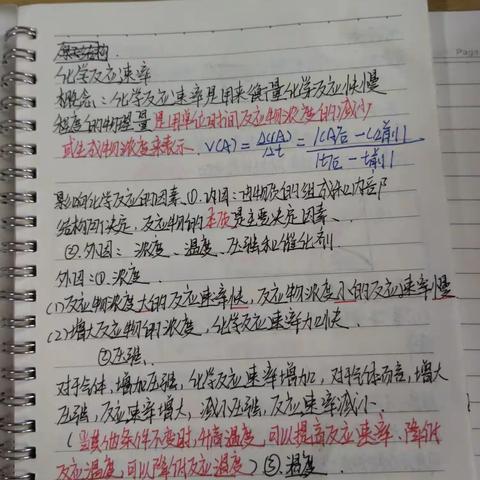 化学反应速率
概念:化学反应速率是用来衡量化学反应快慢
程度的物理量是用单位时间反应物浓度的减少
或生成物浓度来表示. V(A)=ΔC(A)/Δt=|CA后-CA前|/|t后-t前|
影响化学反应的因素.①.内因:由物质的组成和内部
结构所决定,反应物的本质是主要决定因素、
②.外因: 浓度、温度、压强和催化剂.
外因:①.浓度.
(1)反应物浓度大的反应速率快,反应物浓度小的反应速率慢
(2)增大反应物的浓度,化学反应速率加快.
②压强、
对于气体,增加压强,化学反应速率增加,对于气体而言,增大
压强,反应速率增大,减小压强,反应速率减小、
(当其他条件不变时,升高温度,可以提高反应速率.降低
反应温度,可以降低反应温度)③.温度.
Page